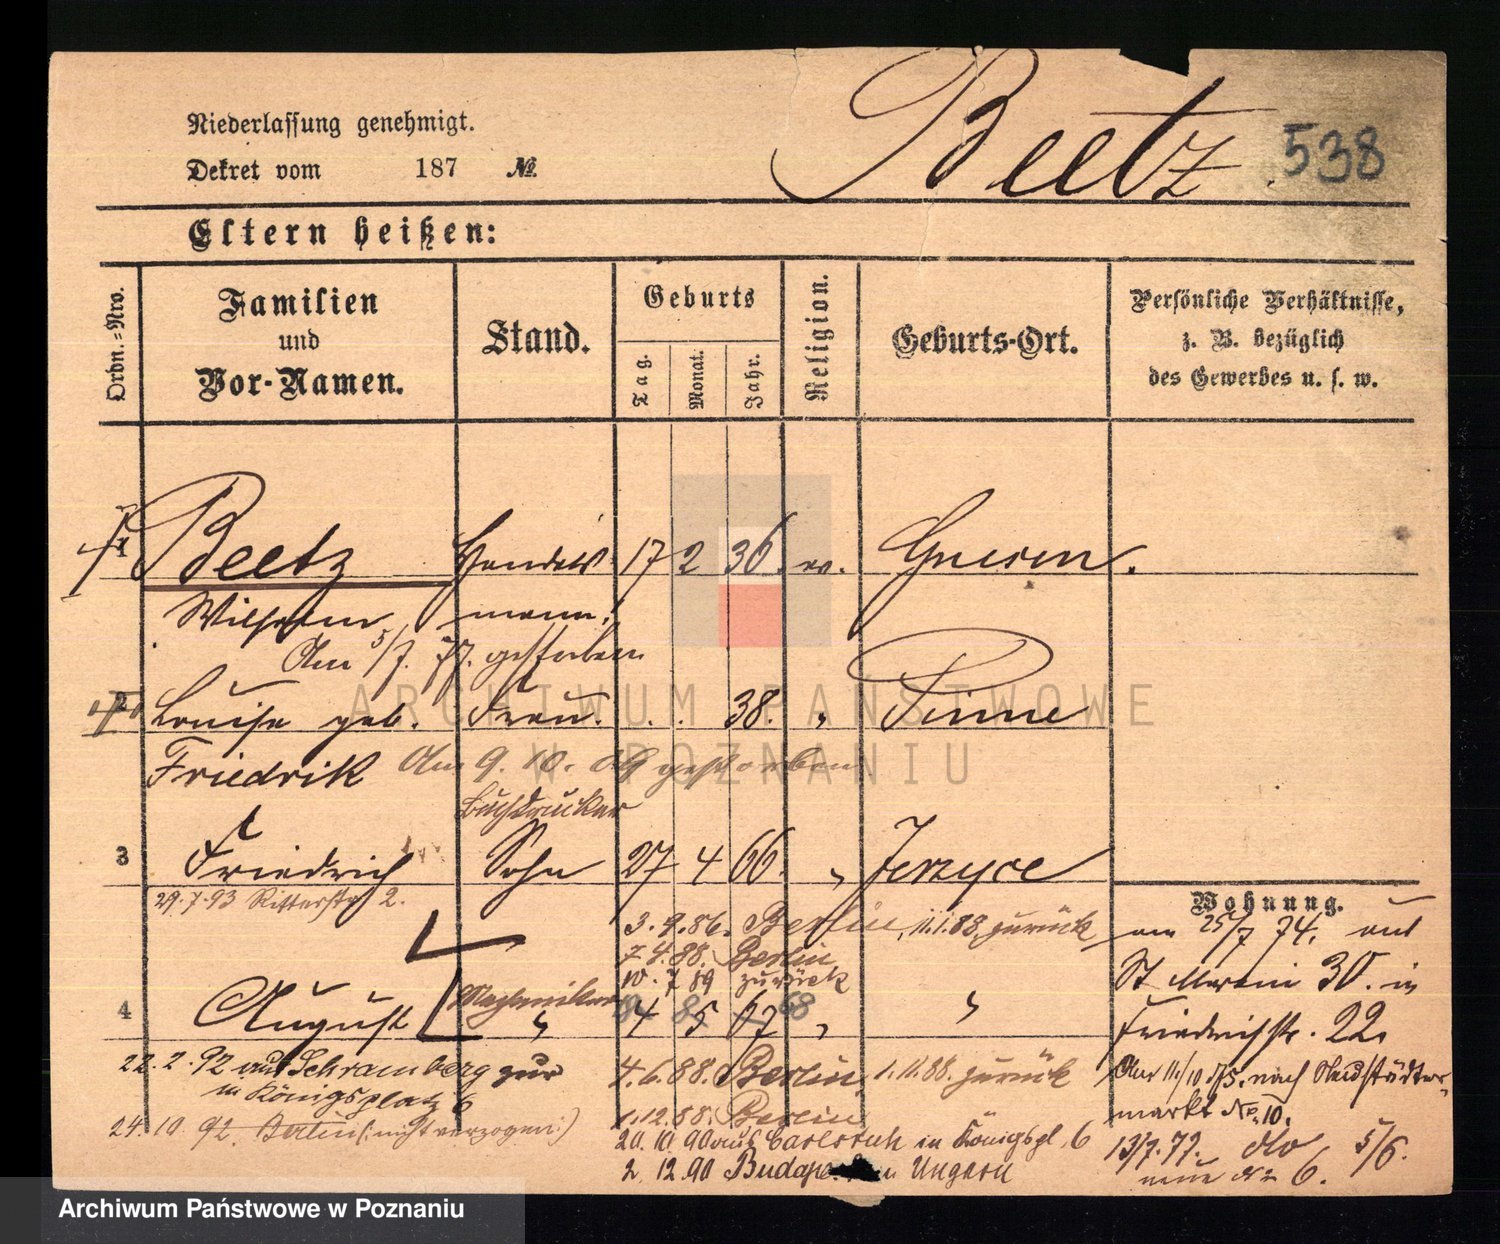 Niederlassung genehmigt.
Beetz 538
Dekret vom 187 №
Eltern heißen:
Ordn.-Nro.
Familien und Vor-Namen.
Stand.
Geburts
Tag. Monat. Jahr.
Religion.
Geburts-Ort.
Persönliche Verhältnisse,
z. B. bezüglich
des Gewerbes u. s. w.
1 Beetz Handels 17 2 36. ev. Gnesen.
Wilhelm mann.
Am 5/7. 77. gestorben
2 Louise geb. Frau. . . 38. " Pinne
Friedrik Am 9. 10. 09 gestorben
Buchdrucker
3 Friedrich Sohn 27 4 66. " Jerzyce
29.7.93 Ritterstr 2.
3.9.86. Berlin, 11.1.88 zurück
7.4.88. Berlin
10.7 89 zurück
4 August Mechaniker " 4 5 67 68 " "
22.2.92 aus Schramberg zur
in Königsplatz 6
24.10.92. Berlin (: nicht verzogen :)
4.6.88. Berlin, 1.11.88. zurück
1.12.88. Berlin
20.10.90 aus Carlsruh in Königspl. 6
2.12.90 Ungarn
Wohnung.
am 25/7 74. aus
St Martin 30. in
Friedrichstr. 22.
Am 11/10 75. nach Neustädter-
markt No. 10.
13/7.77. dto 5/6.
neue № 6.
ARCHIWUM PAŃSTWOWE
W POZNANIU
Archiwum Państwowe w Poznaniu